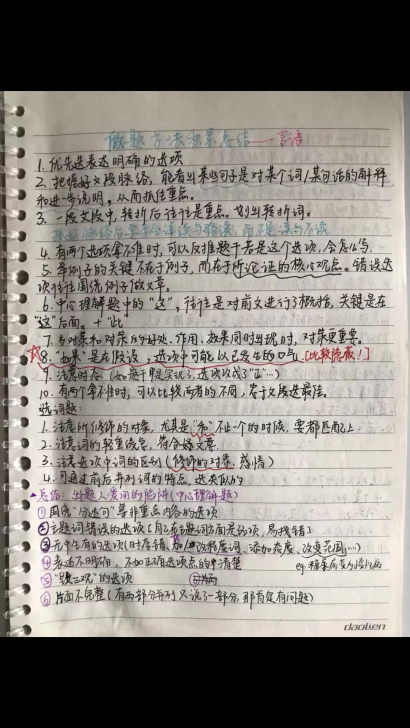 做题方法积累总结——言语
1. 优先选表述明确的选项
2. 把握好文段脉络，能看出某些句子是对某个词/某句话的解释
和进一步说明。从而抓住重点。
3. 一段文段中，转折后往往是重点。划出转折词。
4. 有两个选项拿不准时，可以反推题干若是这个选项，会怎么写
5. 举例子的关键不在于例子，而在于所论证的核心观点。错误选
项往往围绕例子做文章。
6. 中心理解题中的“这”，往往是对前文进行了概括，关键是在
“这”后面。+“此
7. 当对策和对策的好处、作用、效果同时出现时，对策更重要。
8. “如果”是在假设，选项中可能以已发生的口气。[比较隐蔽！]
9. 注意时态（如题干即将实现了，选项改成了“正”…）
10. 有两个拿不准时，可以比较两者的不同，看文段选最佳。
选词题：
1. 注意所修饰的对象，尤其是“和”不止一个的时候，要都匹配上
2. 注意词的轻重缓急，符合好文意
3. 注意选项中词的区别（修饰的对象、感情）
4. 可通过前后并列词的特点，选类似的
总结：出题人爱用的陷阱（中心理解题）
① 围绕“分述句”等非重点内容的选项
② 主题词错误的选项
③ 无中生有的选项（时态错、改程度词、添加态度、改变范围…）
④ 表述不明确，不如正确选项点的清楚
eg 糖尿病变为慢性病
⑤ 的选项
⑥ 片面不完整（有两部分并列只说了一部分，那肯定有问题）
daolien